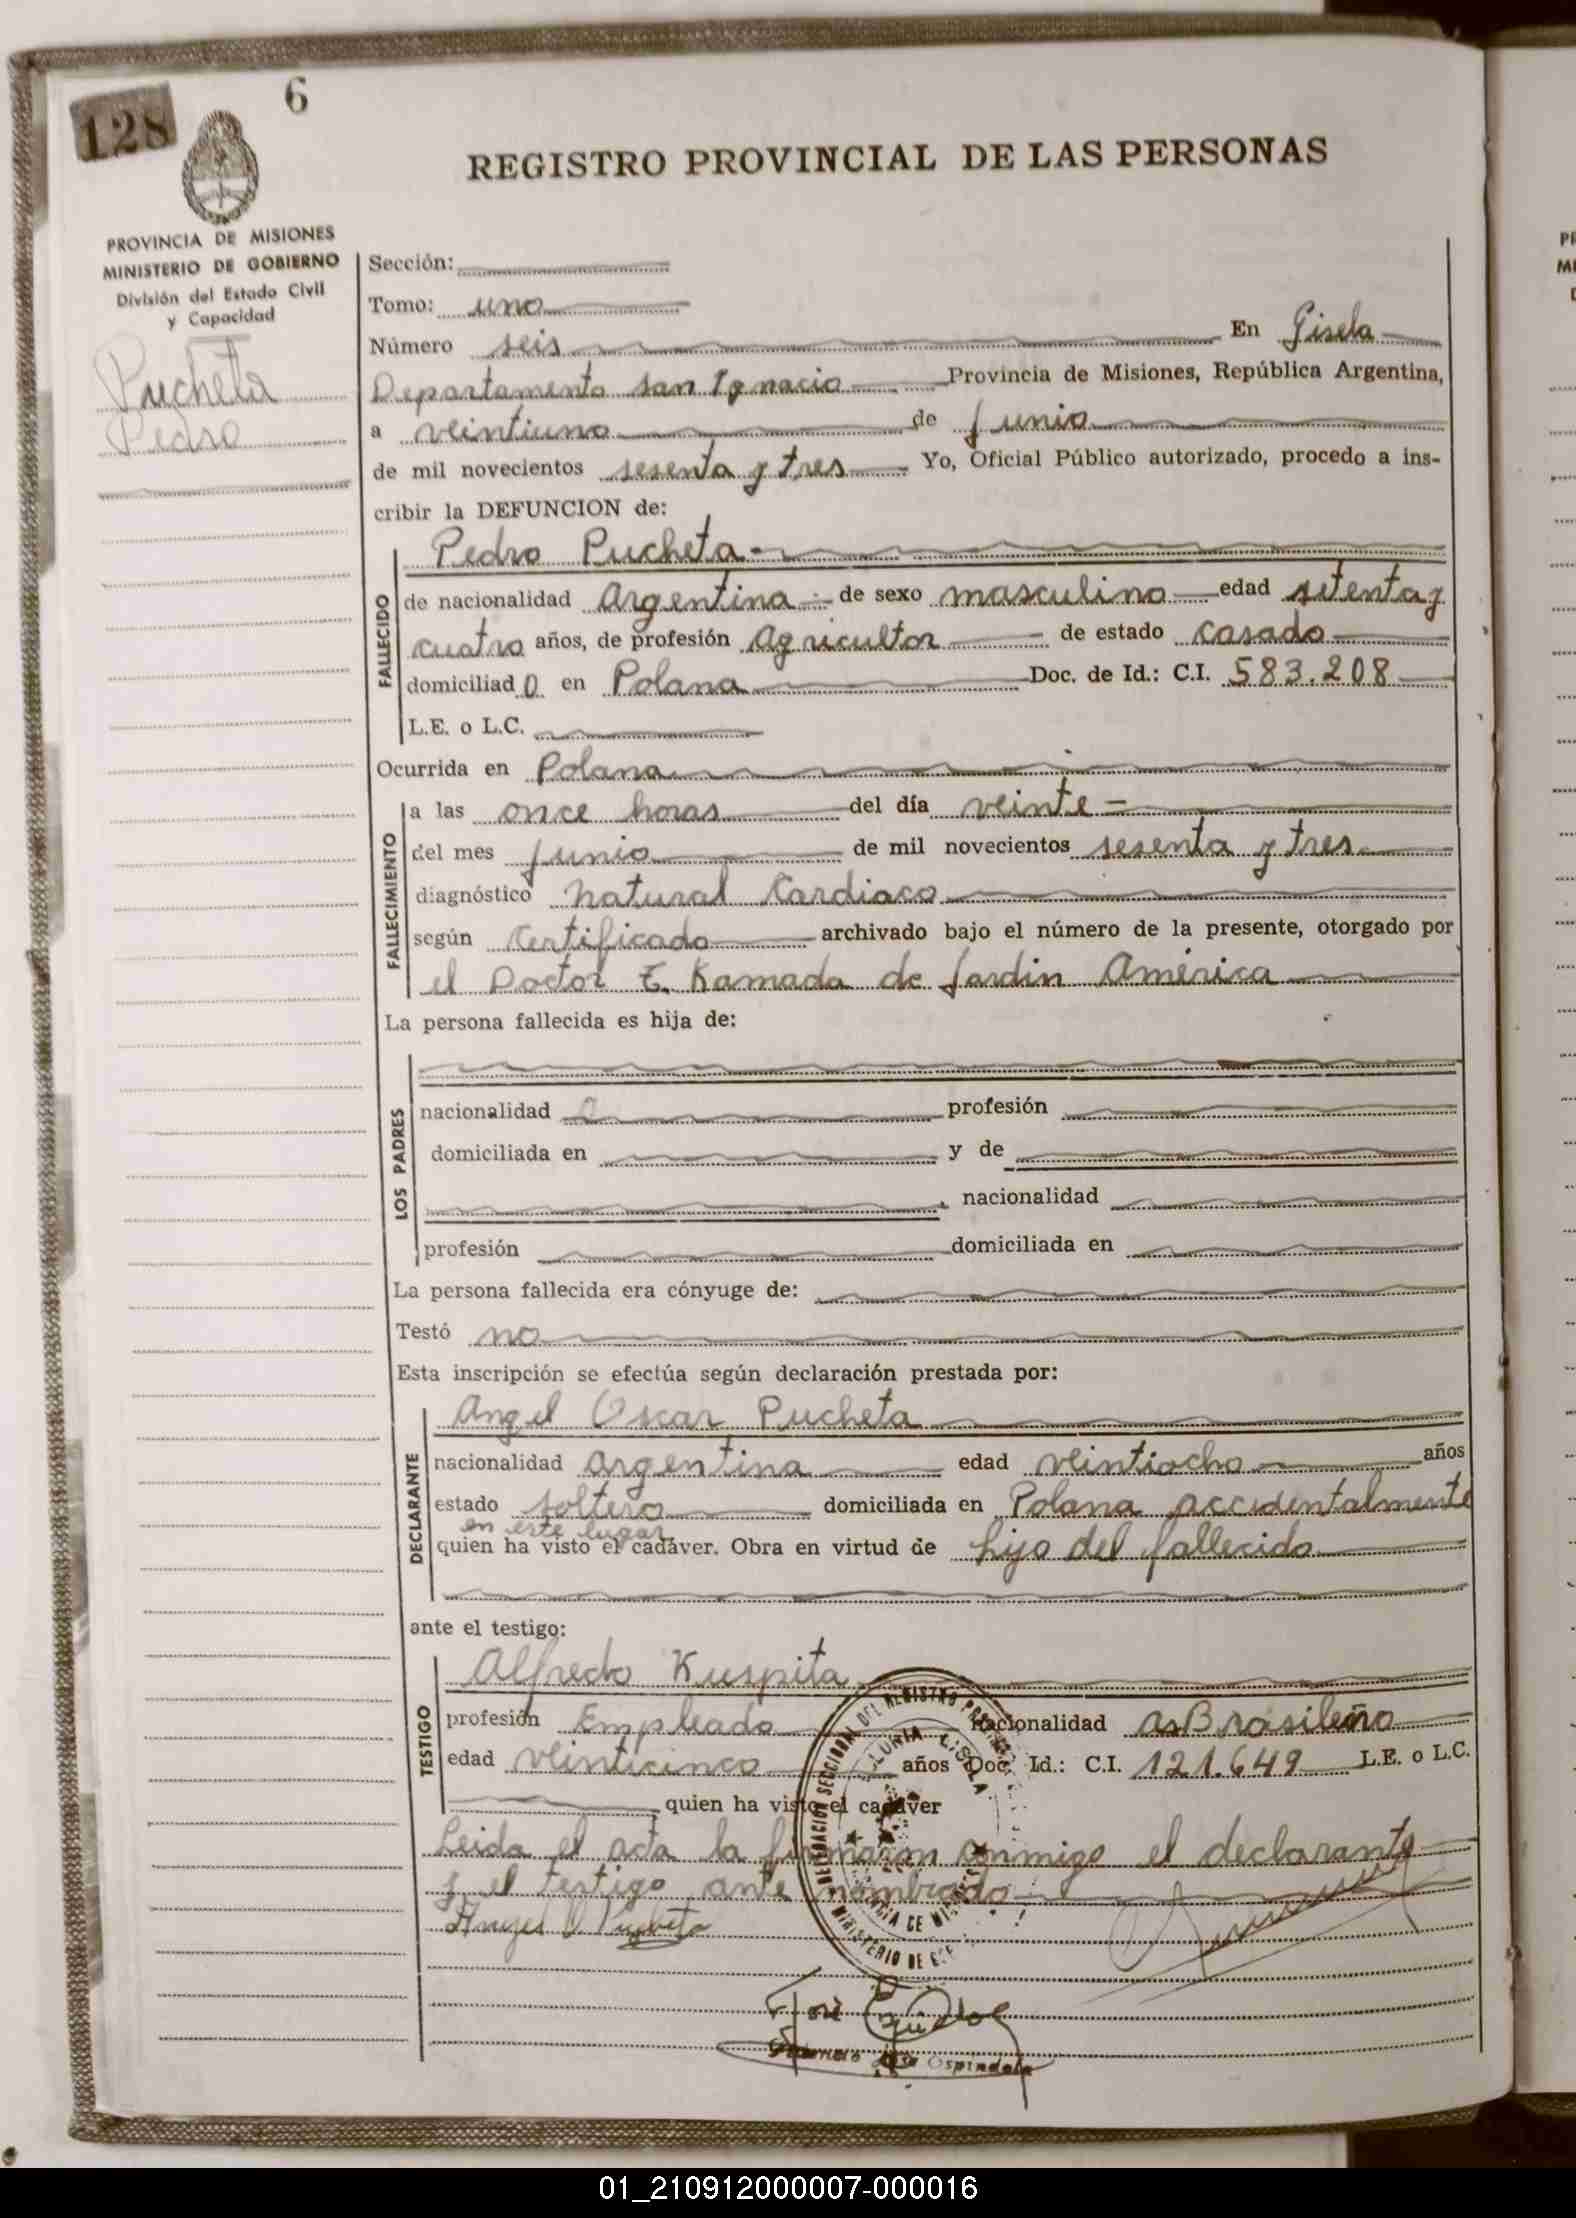 128
6
REGISTRO PROVINCIAL DE LAS PERSONAS
PROVINCIA DE MISIONES
MINISTERIO DE GOBIERNO
División del Estado Civil
y Capacidad
Pucheta
Pedro
Sección:
Tomo: uno
Número seis En Gisela
Departamento San Ignacio Provincia de Misiones, República Argentina,
a veintiuno de Junio
de mil novecientos sesenta y tres Yo, Oficial Público autorizado, procedo a ins-
cribir la DEFUNCION de:
FALLECIDO
Pedro Pucheta
de nacionalidad Argentina de sexo masculino edad setenta y
cuatro años, de profesión Agricultor de estado casado
domiciliado en Polana Doc. de Id.: C.I. 583.208
L.E. o L.C.
Ocurrida en Polana
FALLECIMIENTO
a las once horas del día veinte
del mes Junio de mil novecientos sesenta y tres
diagnóstico natural Cardiaco
según Certificado archivado bajo el número de la presente, otorgado por
el Doctor T. Kamada de Jardin América
La persona fallecida es hija de:
LOS PADRES
nacionalidad profesión
domiciliada en y de
nacionalidad
profesión domiciliada en
La persona fallecida era cónyuge de:
Testó no
Esta inscripción se efectúa según declaración prestada por:
DECLARANTE
Angel Oscar Pucheta
nacionalidad argentina edad veintiocho años
estado soltero domiciliada en Polana accidentalmente
en este lugar
quien ha visto el cadáver. Obra en virtud de hijo del fallecido
ante el testigo:
TESTIGO
Alfredo Kuspita
profesión Empleado nacionalidad Brasileño
edad veinticinco años Doc. Id.: C.I. 121.649 L.E. o L.C.
quien ha visto el cadáver
Leida el acta la firmaron conmigo el declarante
y el testigo ante nombrado
Angel O Pucheta
DELEGACION SECCIONAL DEL REGISTRO
COLONIA GISELA
MINISTERIO DE
José
Ospindola
01_210912000007-000016